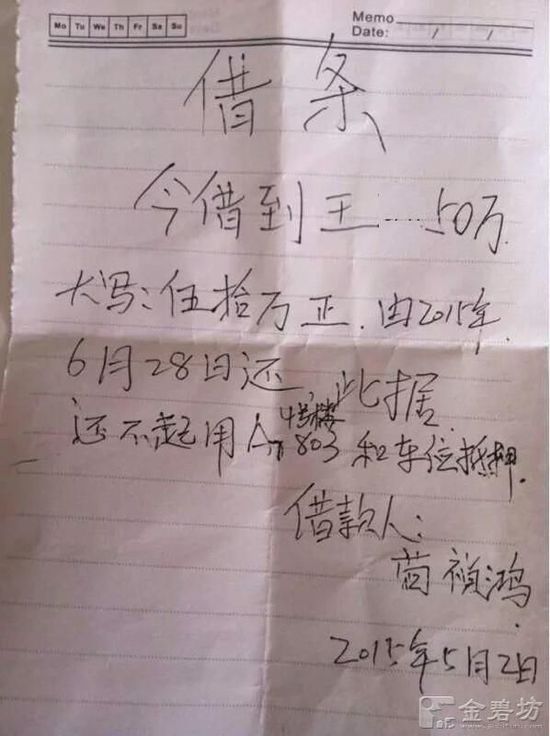 Mo Tu We Th Fr Sa Su
Memo
Date: / /
借条
今借到王 50万
大写:伍拾万正.由2015年.
6月28日还,此据.
4号楼
还不起用 803和车位抵押.
借款人:
祯鸿.
2015年5月2日
金碧坊